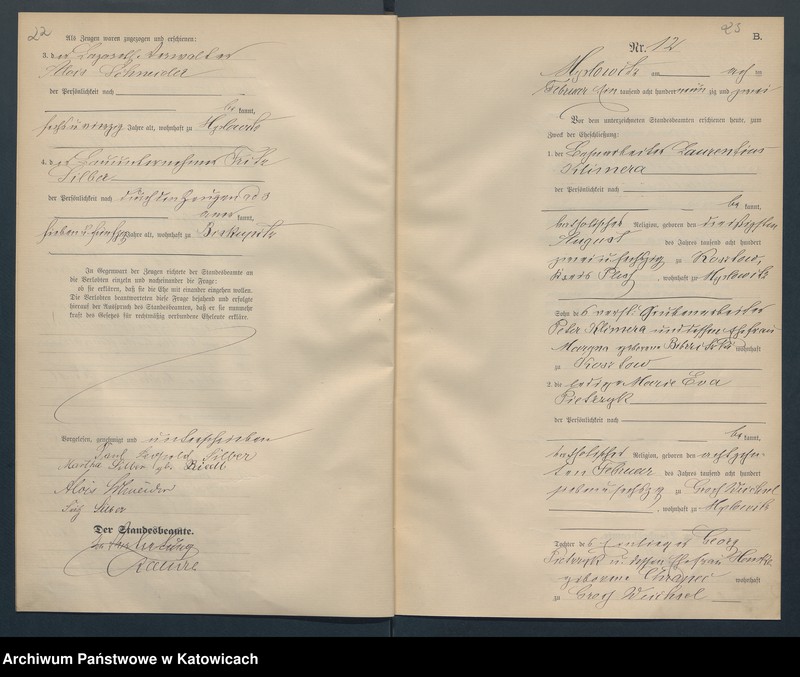 22
Als Zeugen waren zugezogen und erschienen:
3. der Verwalter
Alois Schneider
der Persönlichkeit nach
be kannt,
sechsundvierzig Jahre alt, wohnhaft zu Myslowitz
4. der Bauunternehmer Fritz
Silber
der Persönlichkeit nach durch den Zeugen ad 3
aner kannt,
Jahre alt, wohnhaft zu
In Gegenwart der Zeugen richtete der Standesbeamte an
die Verlobten einzeln und nacheinander die Frage:
ob sie erklären, daß sie die Ehe mit einander eingehen wollen.
Die Verlobten beantworteten diese Frage bejahend und erfolgte
hierauf der Ausspruch des Standesbeamten, daß er sie nunmehr
kraft des Gesetzes für rechtmäßig verbundene Eheleute erkläre.
Vorgelesen, genehmigt und unterschrieben
Paul Leopold Silber
Martha Silber geb. Riedl
Alois Schneider
Fritz Silber
Der Standesbeamte.
In Vertretung
23
B.
Nr. 12
Myslowitz am acht ten
Februar tausend acht hundert neun zig und zwei
Vor dem unterzeichneten Standesbeamten erschienen heute, zum
Zweck der Eheschließung:
1. der Laurentius
Klimera
der Persönlichkeit nach
be kannt,
katholischer Religion, geboren den dreißigsten
August des Jahres tausend acht hundert
zu Kosztow,
Kreis Pleß, wohnhaft zu Myslowitz
Sohn des verst. Grubenarbeiter
Peter Klimera und dessen Ehefrau
geborene wohnhaft
zu Kosztow
2. die ledige Marie Eva
Pietrzyk
der Persönlichkeit nach
be kannt,
katholischer Religion, geboren den achtzehn-
ten Februar des Jahres tausend acht hundert
zu Groß Weichsel
, wohnhaft zu Myslowitz
Tochter des Georg
Pietrzyk u. dessen Ehefrau
geborene wohnhaft
zu Groß Weichsel
Archiwum Państwowe w Katowicach